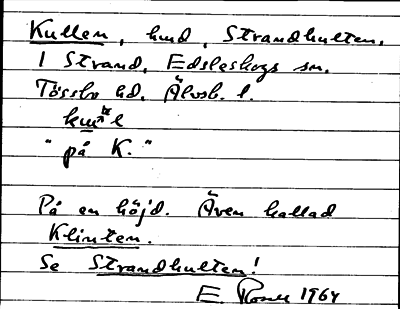 Kullen, hmd, Strandhulten.
I Strand, Edsleskogs sn.
Tössbo hd. Älvsb. l.
"på K."
På en höjd. Även kallad
Klinten.
Se Strandhulten!
E. 1964